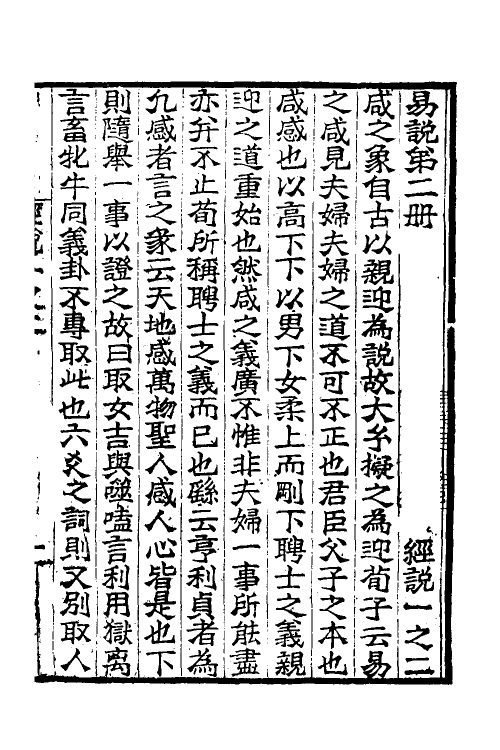 易説第二册 經說一之二
咸之象自古以親迎為説故大𫝊擬之為迎荀子云易
之咸見夫婦夫婦之道不可不正也君臣父子之本也
咸感也以高下下以男下女柔上而剛下聘士之義親
迎之道重始也然咸之義廣不惟非夫婦一事所能盡
亦并不止荀所稱聘士之義而已也繇云亨利貞者為
凢感者言之彖云天地感萬物聖人感人心皆是也下
則隨舉一事以證之故曰取女吉與噬嗑言利用獄离
言畜牝牛同義卦不專取此也六爻之詞則又别取人